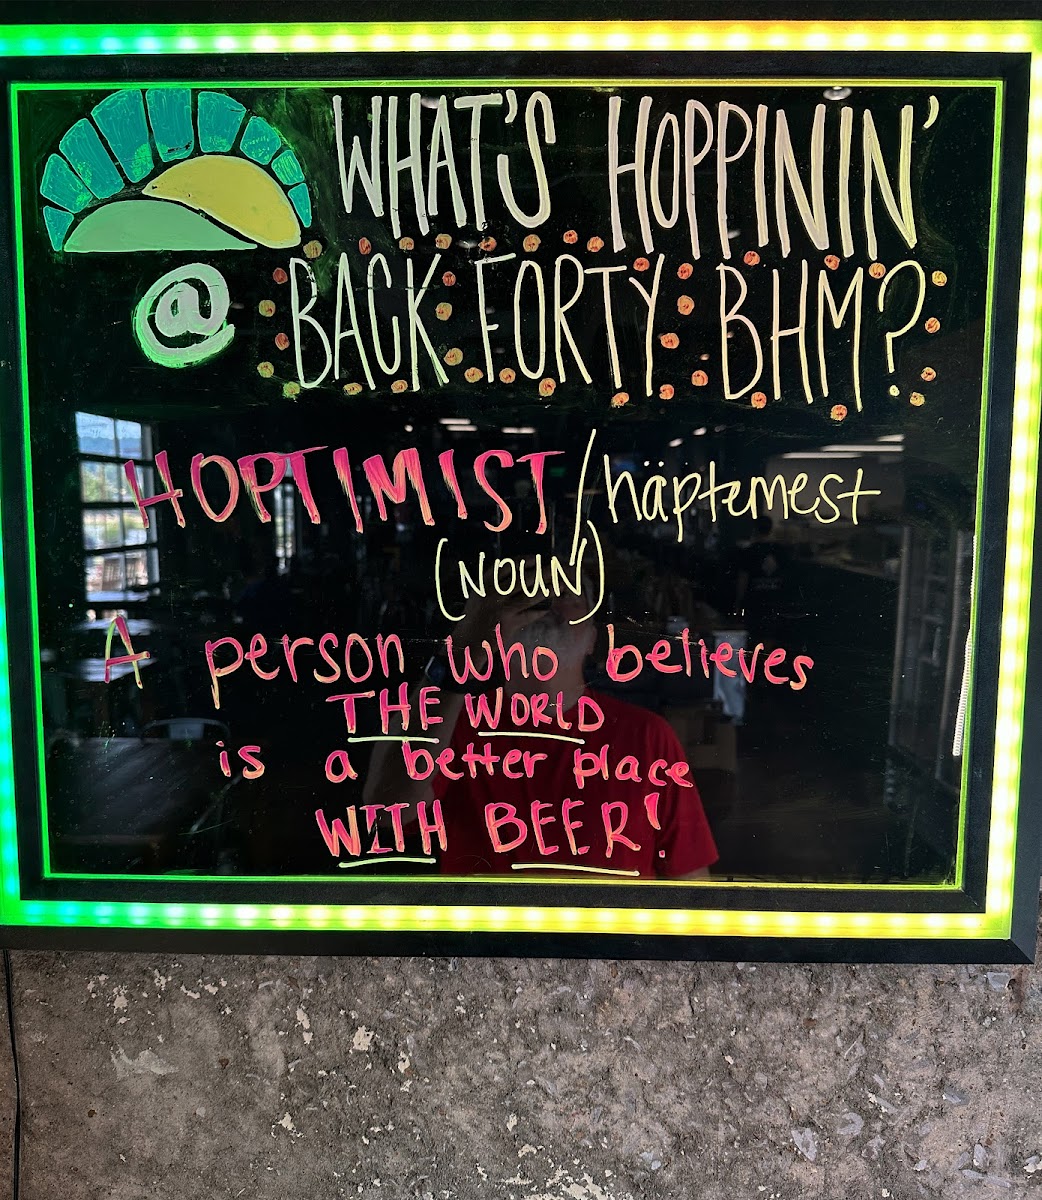 WHAT'S HOPPININ'
@ BACK FORTY BHM?
HOPTIMIST/häptemest
(NOUN)
A person who believes
THE WORLD
is a better place
WITH BEER!